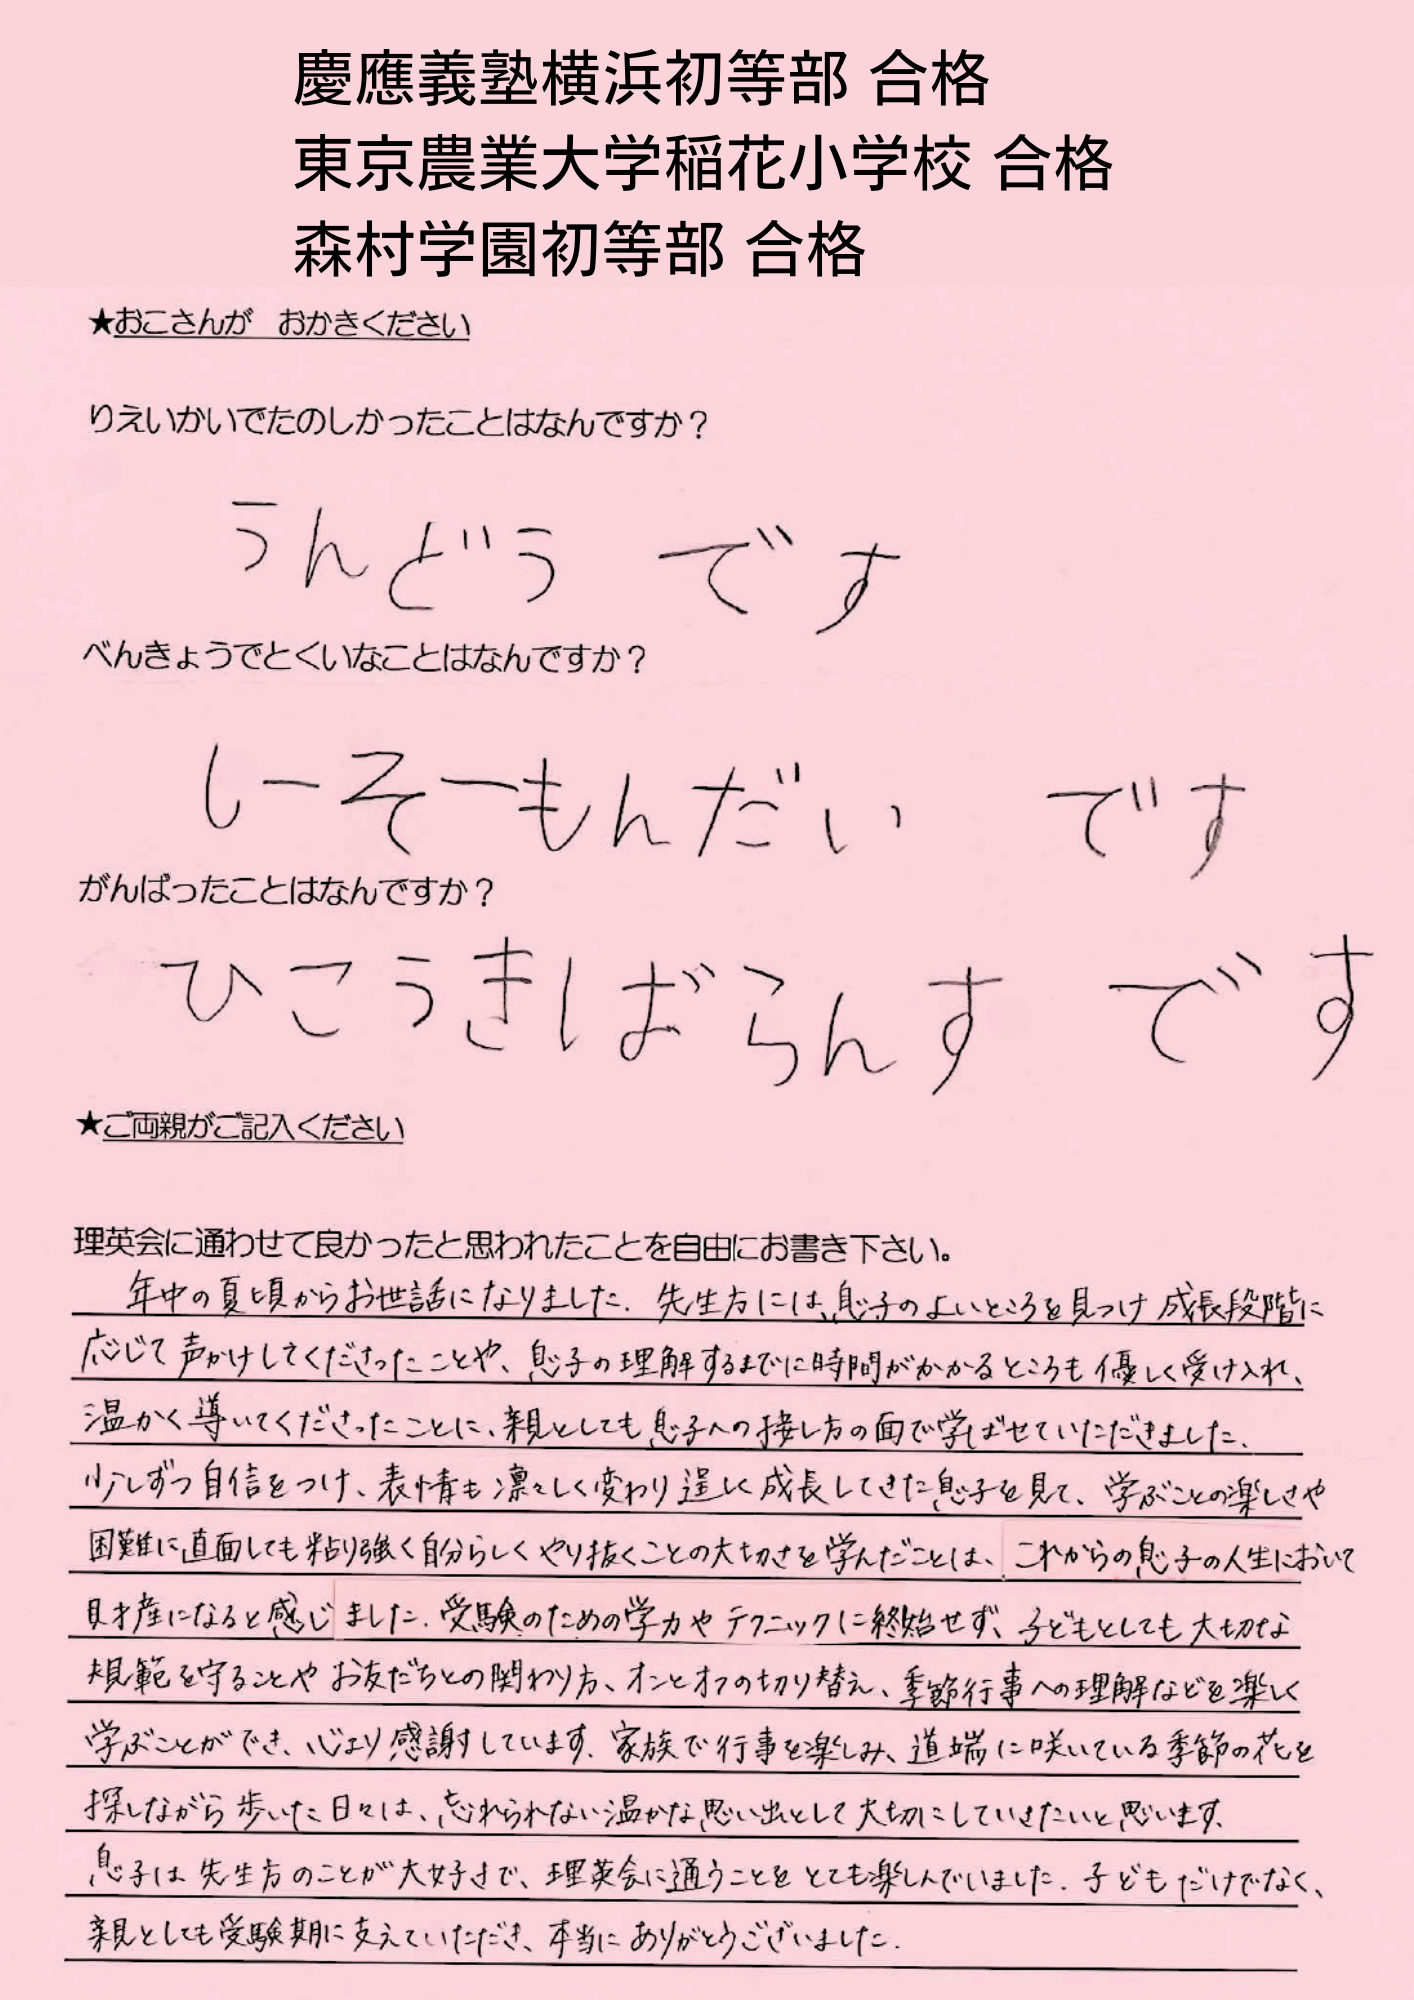 慶應義塾横浜初等部 合格
東京農業大学稲花小学校 合格
森村学園初等部 合格
★おこさんが　おかきください
りえいかいでたのしかったことはなんですか？
うんどう です
べんきょうでとくいなことはなんですか？
しーそーもんだい です
がんばったことはなんですか？
ひこうきばらんす です
★ご両親がご記入ください
理英会に通わせて良かったと思われたことを自由にお書き下さい。
年中の夏頃からお世話になりました。先生方には、息子のよいところを見つけ 成長段階に
応じて声かけしてくださったことや、息子の理解するまでに時間がかかるところも優しく受け入れ、
温かく導いてくださったことに、親としても息子への接し方の面で学ばせていただきました。
少しずつ自信をつけ、表情も凛々しく変わり逞しく成長してきた息子を見て、学ぶことの楽しさや
困難に直面しても粘り強く自分らしくやり抜くことの大切さを学んだことは、これからの息子の人生において
財産になると感じました。受験のための学力やテクニックに終始せず、子どもとしても大切な
規範を守ることやお友だちとの関わり方、オンとオフの切り替え、季節行事への理解などを楽しく
学ぶことができ、心より感謝しています。家族で行事を楽しみ、道端に咲いている季節の花を
探しながら歩いた日々は、忘れられない温かな思い出として大切にしていきたいと思います。
息子は先生方のことが大好きで、理英会に通うことをとても楽しんでいました。子どもだけでなく、
親としても受験期に支えていただき、本当にありがとうございました。